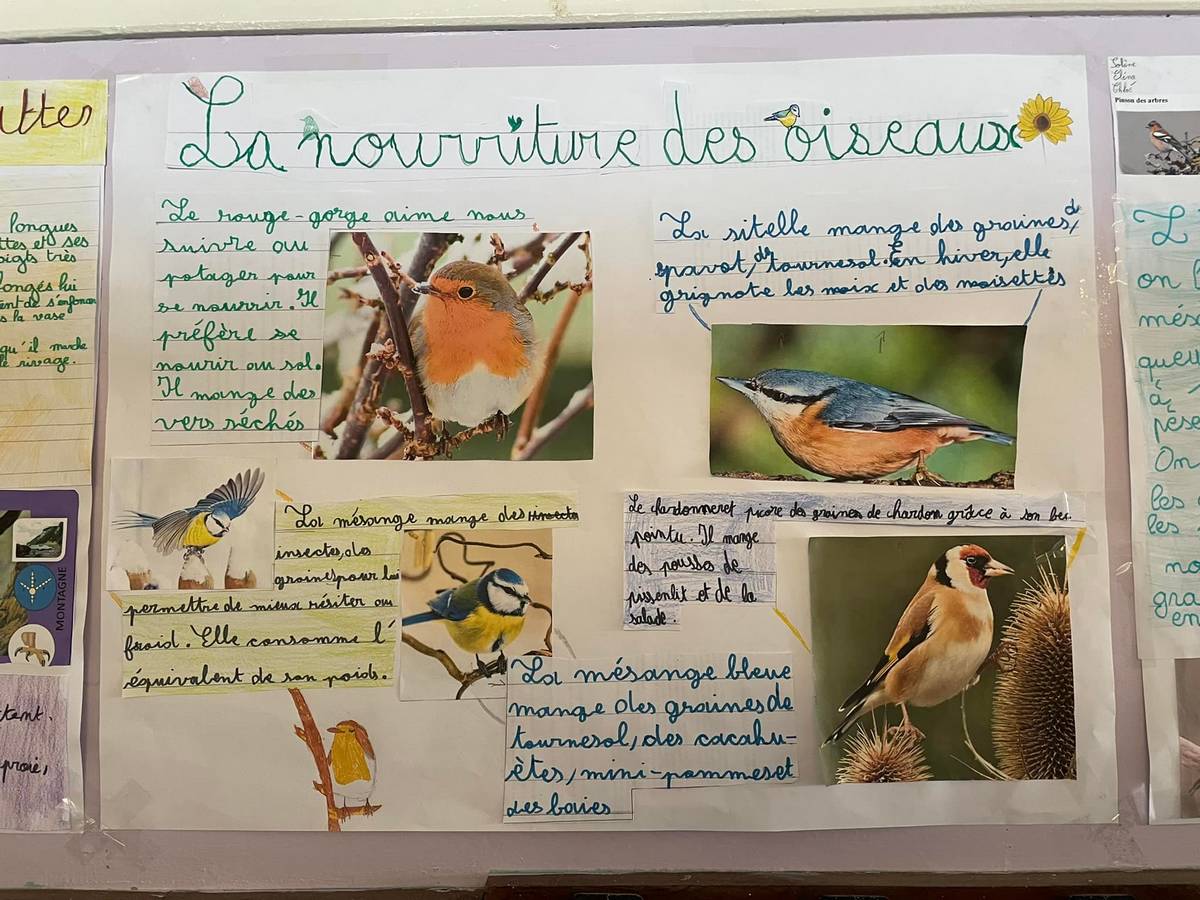 La nourriture des oiseaux
Le rouge-gorge aime nous
suivre au
potager pour
se nourrir. Il
préfère se
nourir au sol.
Il mange des
vers séchés
La sitelle mange des graines, de
pavot, de tournesol. En hiver, elle
grignote les noix et des noisettes
La mésange mange des
insectes, des
graines pour lui
permettre de mieux résiter au
froid. Elle consomme l'
équivalent de son poids.
Le chardonneret picore des graines de chardon grâce à son bec
pointu. Il mange
des pousses de
pissenlit et de la
salade.
La mésange bleue
mange des graines de
tournesol, des cacahu-
ètes, mini-pommes et
des baies
attes
longues
ttes et ses
oigts très
longés lui
s la vase
qu'il marche
le rivage.
MONTAGNE
tent.
proie,
Solène
Eléna
Chloé
Pinson des arbres
L
on l
més
queu
à
pèse
On
les
les
no
gra
en